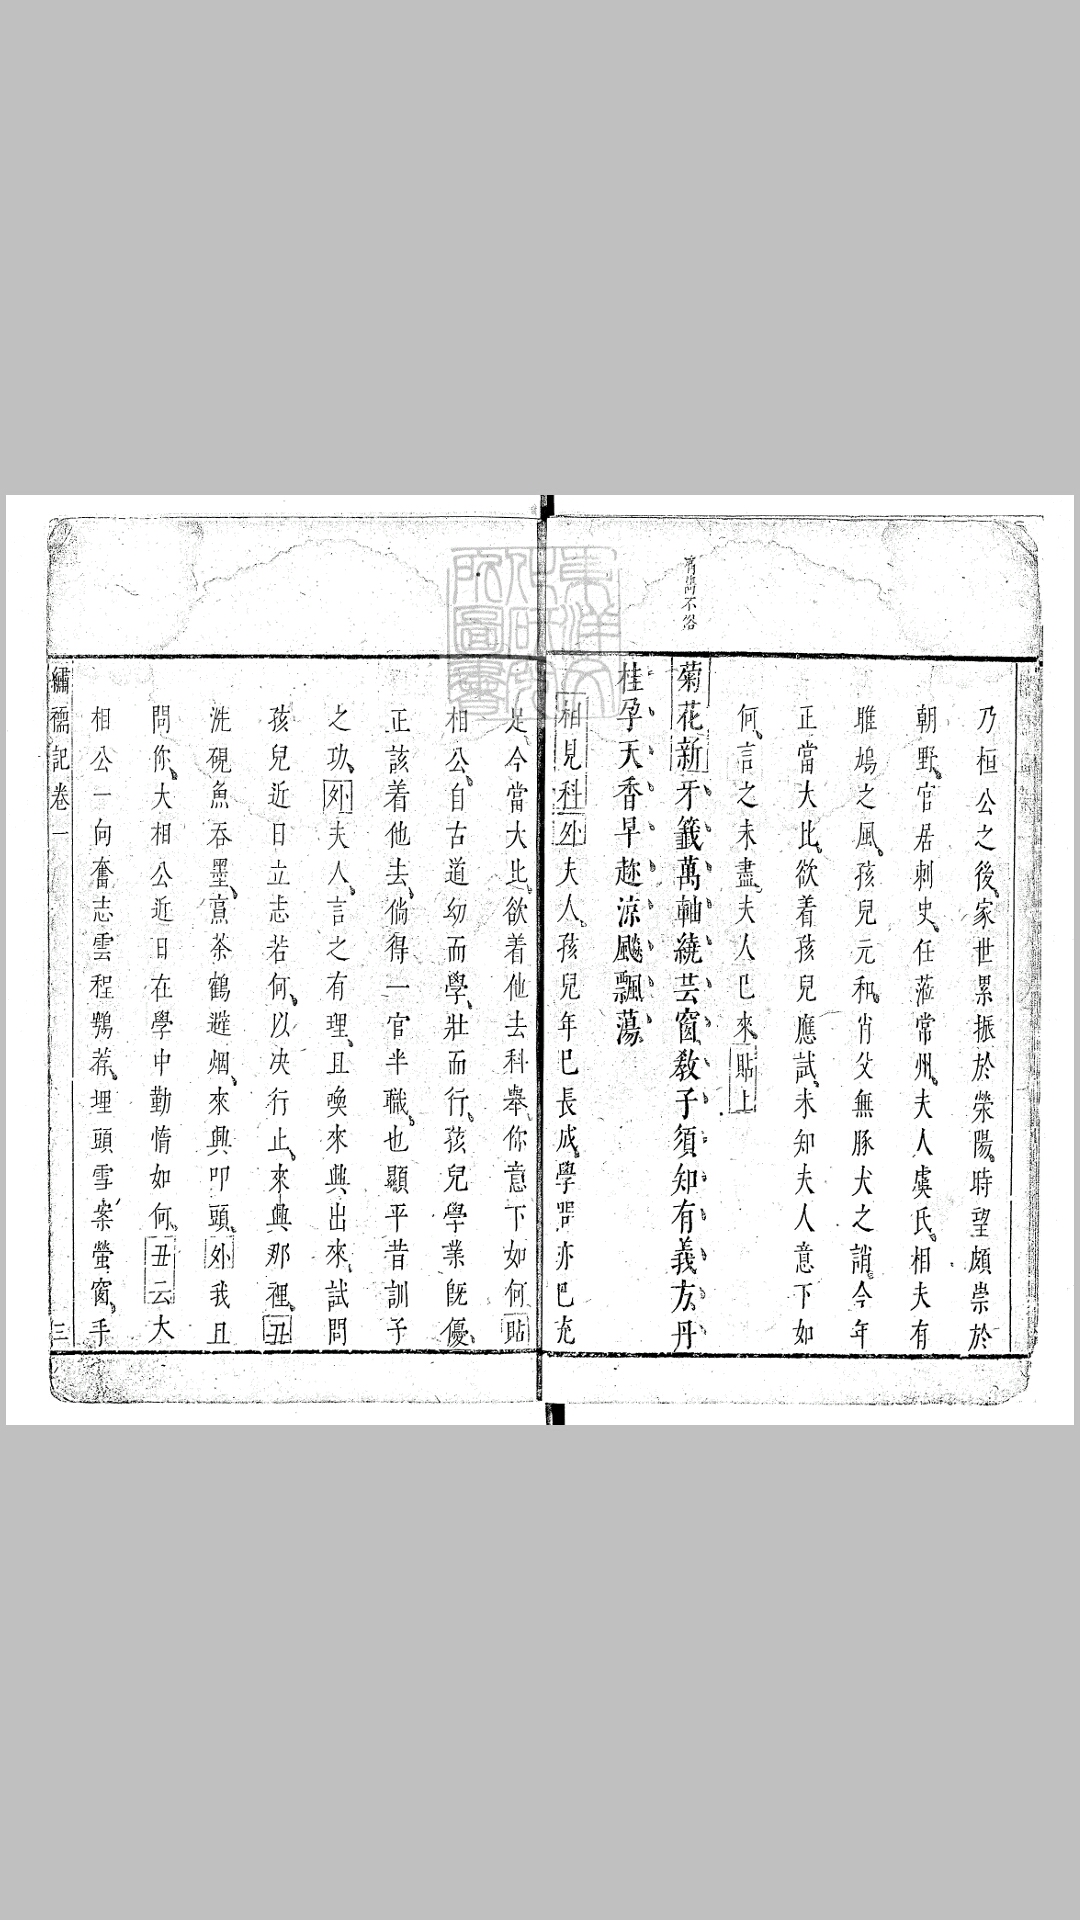 乃桓公之後、家世累振於滎陽。時望頗崇於
朝野。官居刺史。任蒞常州。夫人虞氏。相夫有
雎鳩之風。孩兒元和。肖父無豚犬之誚。今年
正當大比。欲着孩兒應試、未知夫人意下如
何。言之未盡。夫人已來。貼上
不俗
菊花新牙籤萬軸繞芸窗教子須知有義方丹
桂孕天香早趂涼颸飄蕩
相見科外夫人。孩兒年巳長成。學問亦巳充
足、今當大比。欲着他去科舉、你意下如何貼
相公。自古道幼而學、壯而行。孩兒學業旣優、
正該着他去、倘得一官半職。也顯平昔訓子
之功、外夫人、言之有理、且喚來興出來、試問
孩兒近日立志若何。以决行止、來興那裡。丑
洗硯魚吞墨、烹茶鶴避烟、來興叩頭。外我且
問你。大相公近日在學中勤惰如何。丑云大
相公一向奮志雲程鶚荐。埋頭雪案螢窗。手
繡襦記卷一
三
東洋文化研究所圖書